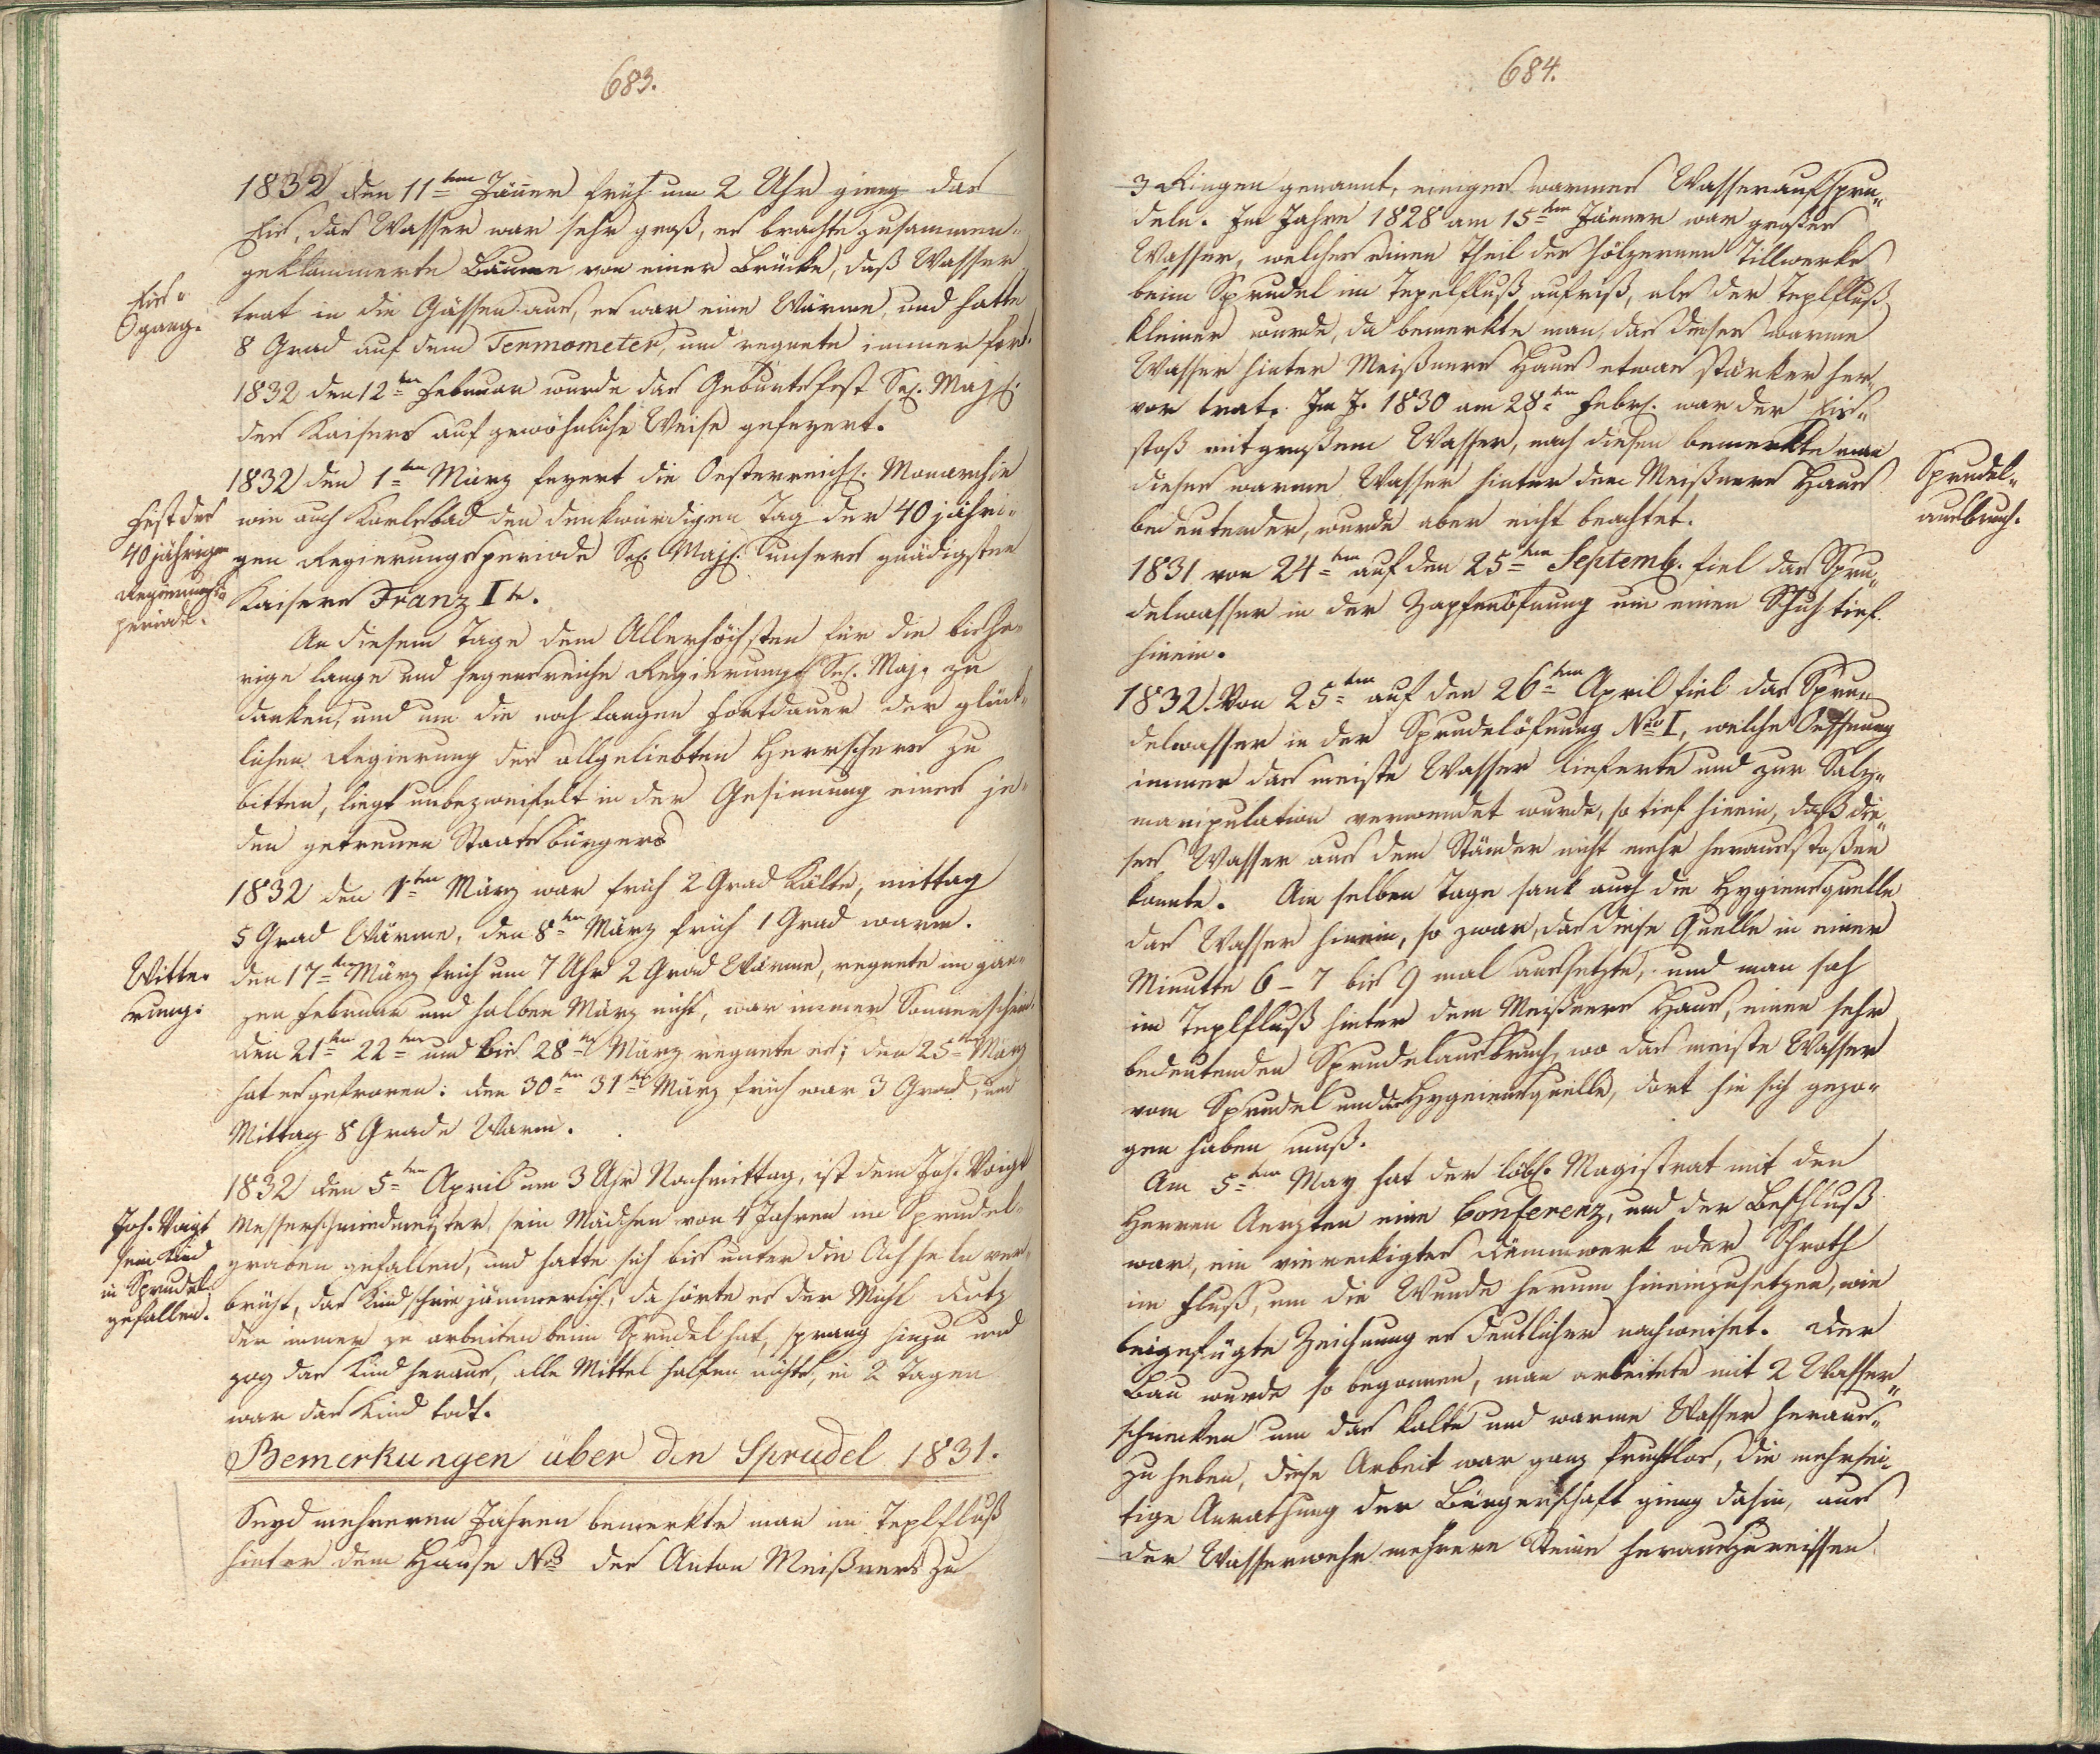 683.
1832 den 11ten Jäner früh um 2 Uhr gieng das
Eis, das Wasser war sehr groß, es brachte zusammen-
geklammerte Bäume von einer Brücke, daß Wasser
Eis-
gang.
trat in die Gässen aus, es war eine Wärme, und hatte
8 Grad auf dem Termometer, und regnete immer fort.
1832 den 12ten Februar wurde das Geburtsfest Sr. Maj.
des Kaisers auf gewöhnliche Weise gefeyert.
1832 den 1ten März feyert die Oesterreich. Monarchie
Fest der
40 jährigen
Regierungs-
periode.
wie auch Karlsbad den denkwürdigen Tag der 40 jähri-
gen Regierungsperiode Sr. Maj. unsers gnädigsten
Kaisers Franz I te.
An diesem Tage dem Allerhöchsten für die bishe-
rige lange und segensreiche Regierung Sr. Maj. zu
danken, und um die noch langen Fortdauer der glück-
lichen Regierung des allgeliebten Herrschers zu
bitten, liegt unbezweifelt in der Gesinnung eines je-
den getreuen Staatsbürgers
1832 den 1ten März war früh 2 Grad Kälte, mittag
5 Grad Wärme, den 8ten März früh 1 Grad warm.
Witte-
rung:
den 17ten März früh um 7 Uhr 2 Grad Wärme, regnete im gan-
zen Februar und halben März nicht, war immer Sonnenschein.
den 21ten 22ten und bis 28ten März regnete es; den 25ten März
hat es gefroren: den 30ten 31ten März früh war 3 Grad, und
Mittag 8 Grade Warm.
1832 den 5ten April um 3 Uhr Nachmittag, ist dem Joh. Voigt
Joh. Voigt
sein Kind
in Sprudel
gefallen.
Messerschmiedmeister, sein Mädchen von 4 Jahren im Sprudel-
graben gefallen, und hatte sich bis unter die Achseln ver-
brüht, das Kind schrie jämmerlich, da hörte es der Mich. Lutz
der immer zu arbeiten beim Sprudel hat, sprang hinzu und
zog das Kind heraus, alle Mittel halfen nichts, in 2 Tagen
war das Kind todt.
Bemerkungen über den Sprudel 1831.
Seyd mehreren Jahren bemerkte man im Teplfluß
hinter dem Hause Nro des Anton Meißners zu
684.
3 Ringen genannt, einiges warmes Wasser aufspru-
deln. Im Jahre 1828 am 15ten Jänner war großes
Wasser, welches einen Theil des hölzernen Tillwerks
beim Sprudel im Tepelfluß aufriß, als der Teplfluß
kleiner wurde, da bemerkte man, das dieses warme
Wasser hinter Meißners Haus etwas stärker her-
vor trat. Im J. 1830 am 28ten Febr. war der Eis-
stoß mit großem Wasser, nach diesen bemerkte man
dieses warme Wasser hinter dem Meißners Haus
Sprudel-
ausbruch.
bedeutender, wurde aber nicht beachtet.
1831 von 24ten auf den 25ten Septemb. fiel das Spru-
delwasser in der Zapfenöfnung um einen Schuh tief
hinein.
1832. Von 25ten auf den 26ten April fiel das Spru-
delwasser in der Sprudelöfnung Nro I, welche Oeffnung
immer das meiste Wasser lieferte und zur Salz-
manipulation verwendet wurde, so tief hinein, daß die-
ses Wasser aus dem Ständer nicht mehr herausstoßen
konnte. Am selben Tage sank auch die Hygiensquelle
das Wasser hinein, so zwar, das diese Quelle in einer
Minutte 6 - 7 bis 9 mal aussetzte, und man sah
im Teplfluß hinter dem Meißners Haus, einen sehr
bedeutenden Sprudelausbruch, wo das meiste Wasser
vom Sprudel und der Hygeiensquelle, dort hin sich gezo-
gen haben muß.
Am 5ten May hat der löbl. Magistrat mit den
Herren Aerzten eine Conferenz, und der Beschluß
war, ein viereckigtes Dämmwerk oder Schroth
im Fluß, um die Wunde herum hineinzusetzen, wie
beigefügte Zeichnung es deutlicher nachweiset. Der
Bau wurde so begonnen, man arbeitete mit 2 Wasser-
schnecken um das kalte und warme Wasser heraus-
zu heben, diese Arbeit war ganz fruchtlos, die mehrsei-
tige Anrathung der Bürgerschaft gieng dahin, aus
der Wasserwehr mehrere Steine herauszureissen